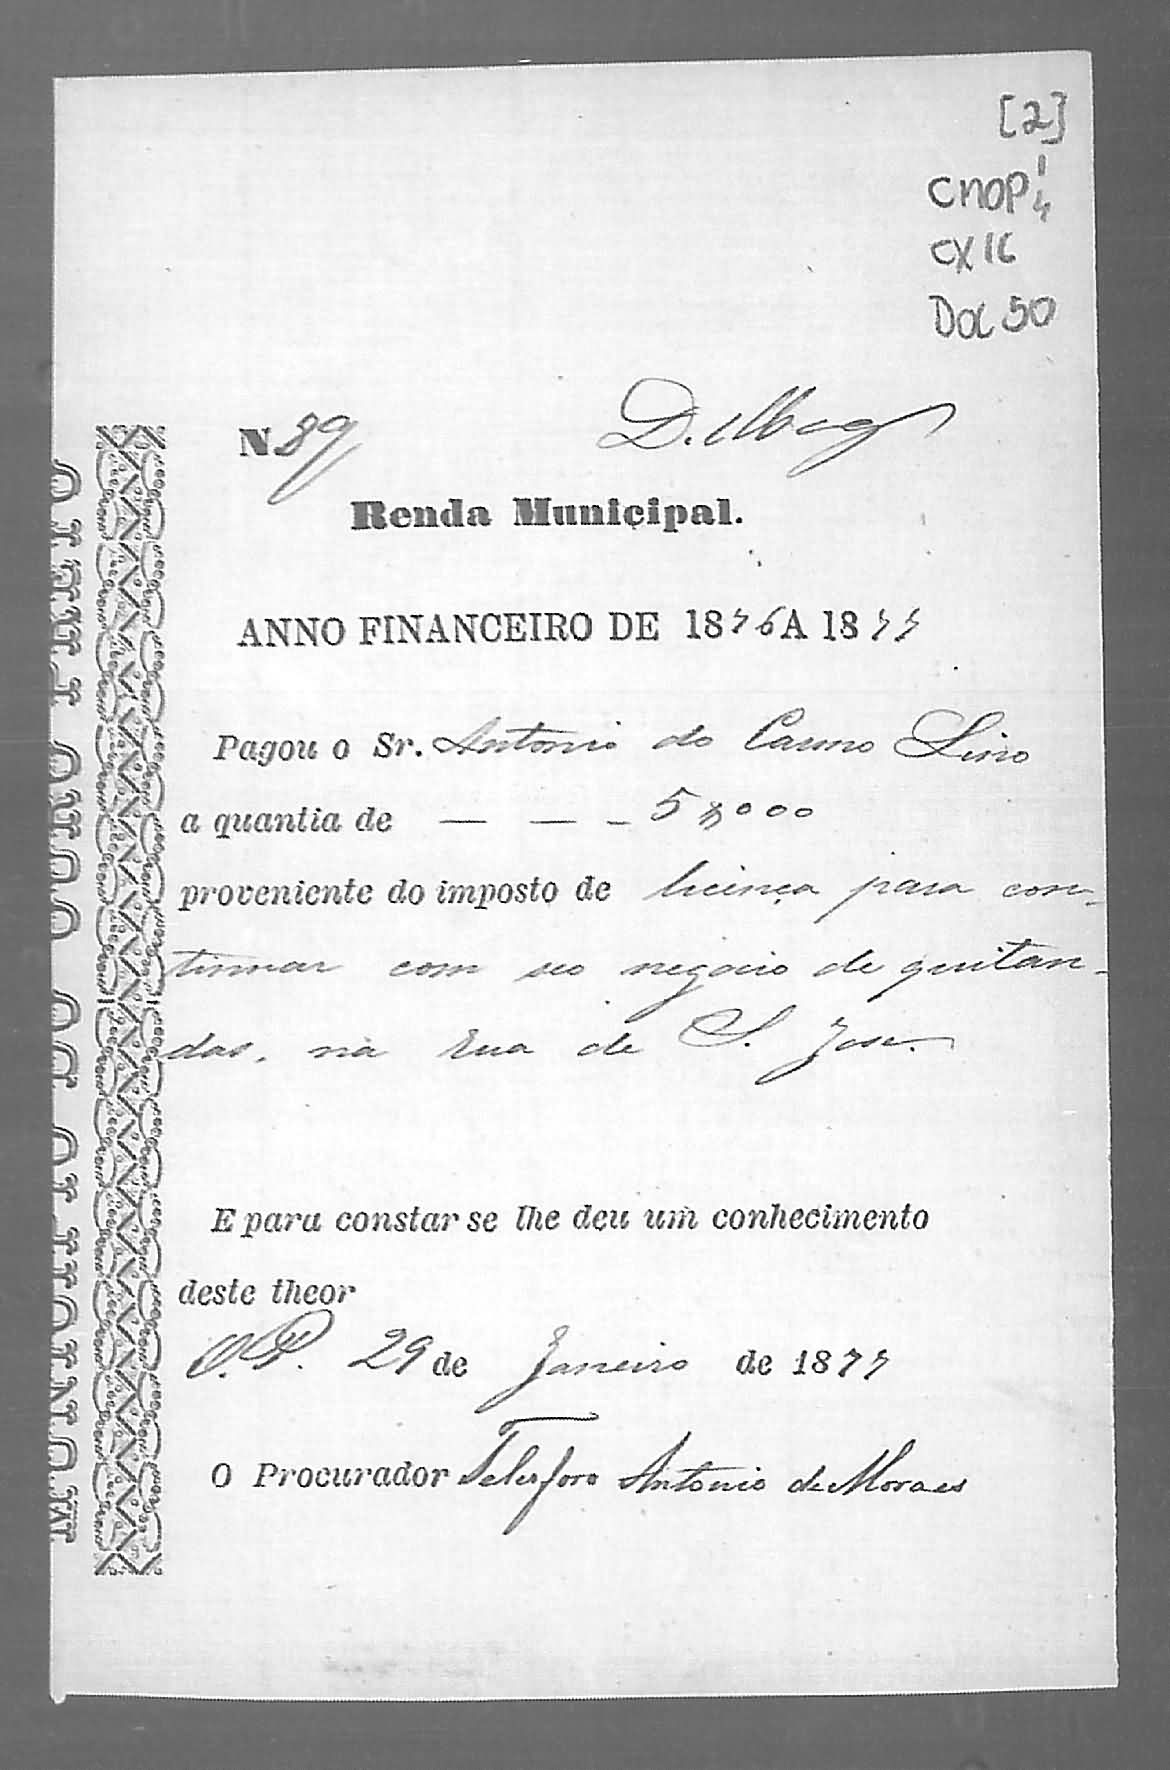 [2]
CMOP 1/4
CX 16
Doc 50
N 39
Renda Municipal.
ANNO FINANCEIRO DE 1876 A 1877
Pagou o Sr. Antonio do Carmo Lino
a quantia de — — — 5$000
proveniente do imposto de licença para con-
tinuar com seo negocio de quitan-
das, na Rua de S. José.
E para constar se lhe deu um conhecimento
deste theor
O. P. 29 de Janeiro de 1877
O Procurador Telesforo Antonio de Moraes